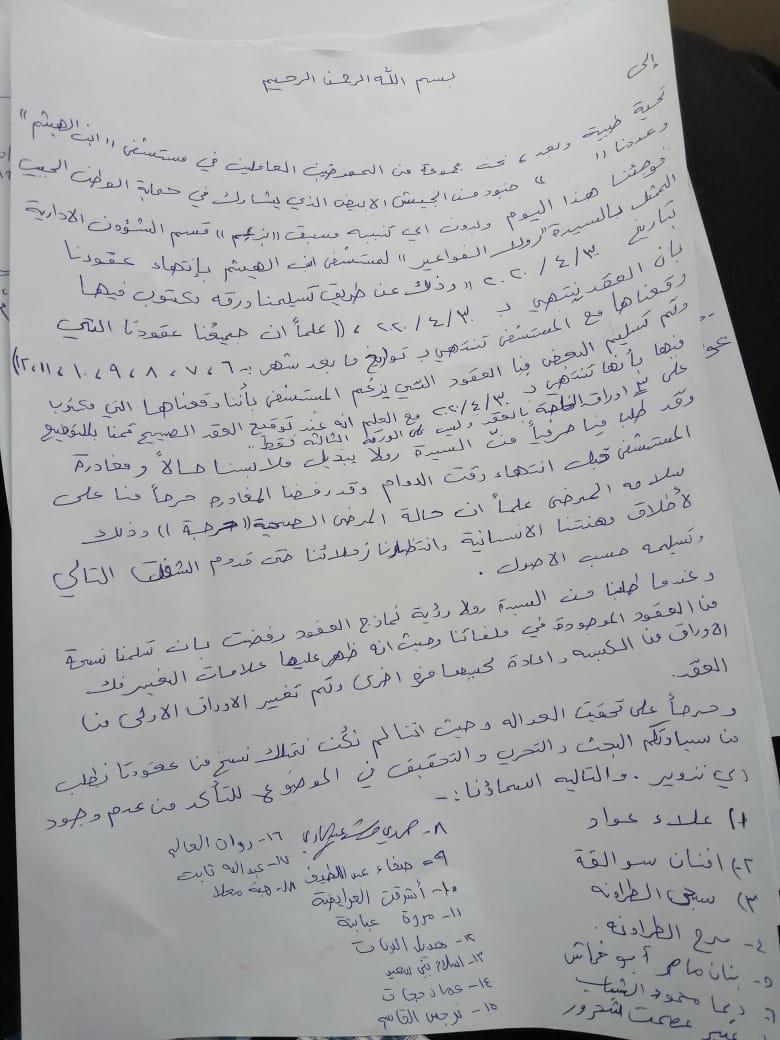 بسم الله الرحمن الرحيم
إلى
تحية طيبة وبعد ، نحن مجموعة من الممرضين العاملين في مستشفى "ابن الهيثم"
وعددنا " " جنود من الجيش الابيض الذي يشارك في حماية الوطن الحبيب
فوجئنا هذا اليوم وبدون اي تنبيه مسبق "بزعم" قسم الشؤون الادارية
المتمثل بالسيدة "رولا الفواعير" لمستشفى ابن الهيثم بإنتهاء عقودنا
بتاريخ ٢٠٢٠/٤/٣٠ "وذلك عن طريق تسليمنا ورقه مكتوب فيها
بان العقد ينتهي ب ٢٠٢٠/٤/٣٠ ، (( علماً ان جميعنا عقودنا التي
وقعناها مع المستشفى تنتهي ب تواريخ ما بعد شهر ب ٦ ، ٧ ، ٨ ، ٩ ، ١٠ ، ١١ ، ١٢))
وتم تسليم البعض منا العقود التي يزعم المستشفى بأننا وقعناها التي مكتوب
فيها بأنها تنتهي ب ٢٠٢٠/٤/٣٠ مع العلم انه عند توقيع العقد الصحيح قمنا بالتوقيع
على ٣ اوراق الخاصة بالعقد وليس على الورقة الثالثه فقط"
وقد طلب منا حرفياً من السيدة رولا بتبديل ملابسنا حالاً ومغادرة
المستشفى قبل انتهاء وقت الدوام وقد رفضنا المغادرة حرصاً منا على
سلامه المرضى علماً ان حالة المرضى الصحية ((حرجة)) وذلك
لأخلاق مهنتنا الانسانية وانتظارنا زملائنا حتى قدوم الشفت التالي
وتسليمه حسب الاصول .
وعندما طلبنا من السيدة رولا رؤية نماذج العقود رفضت بان تسلمنا نسخة
من العقود الموجودة في ملفاتنا وحيث انه ظهر عليها علامات التغيير فك
الاوراق من الكبسه واعادة كبسها مرة اخرى وتم تغيير الاوراق الاولى من
العقد.
وحرصاً على تحقيق العداله وحيث اننا لم نكن نمتلك نسخ من عقودنا نطلب
من سيادتكم البحث والتحري والتحقيق في الموضوع للتأكد من عدم وجود
اي تزوير . والتاليه اسماؤنا :-
١) علاء عواد
٢- افنان سوالقة
٣) سجى الطراونه
٤- مرح الطراونه
٥- بنان ماهر أبو خماش
٦) ديما محمود الشياب
عصمت شحرور
٨- حمدي
٩- صفاء عبد اللطيف
١٠- أشرقت العرايضة
١١- مروة عبابنة
١٢- هديل
١٣- اسلام بني سعيد
١٤- عماد
١٥- نرجس القاسم
١٦- روان العالم
١٧- عبدالله ثابت
١٨- هبة معلا